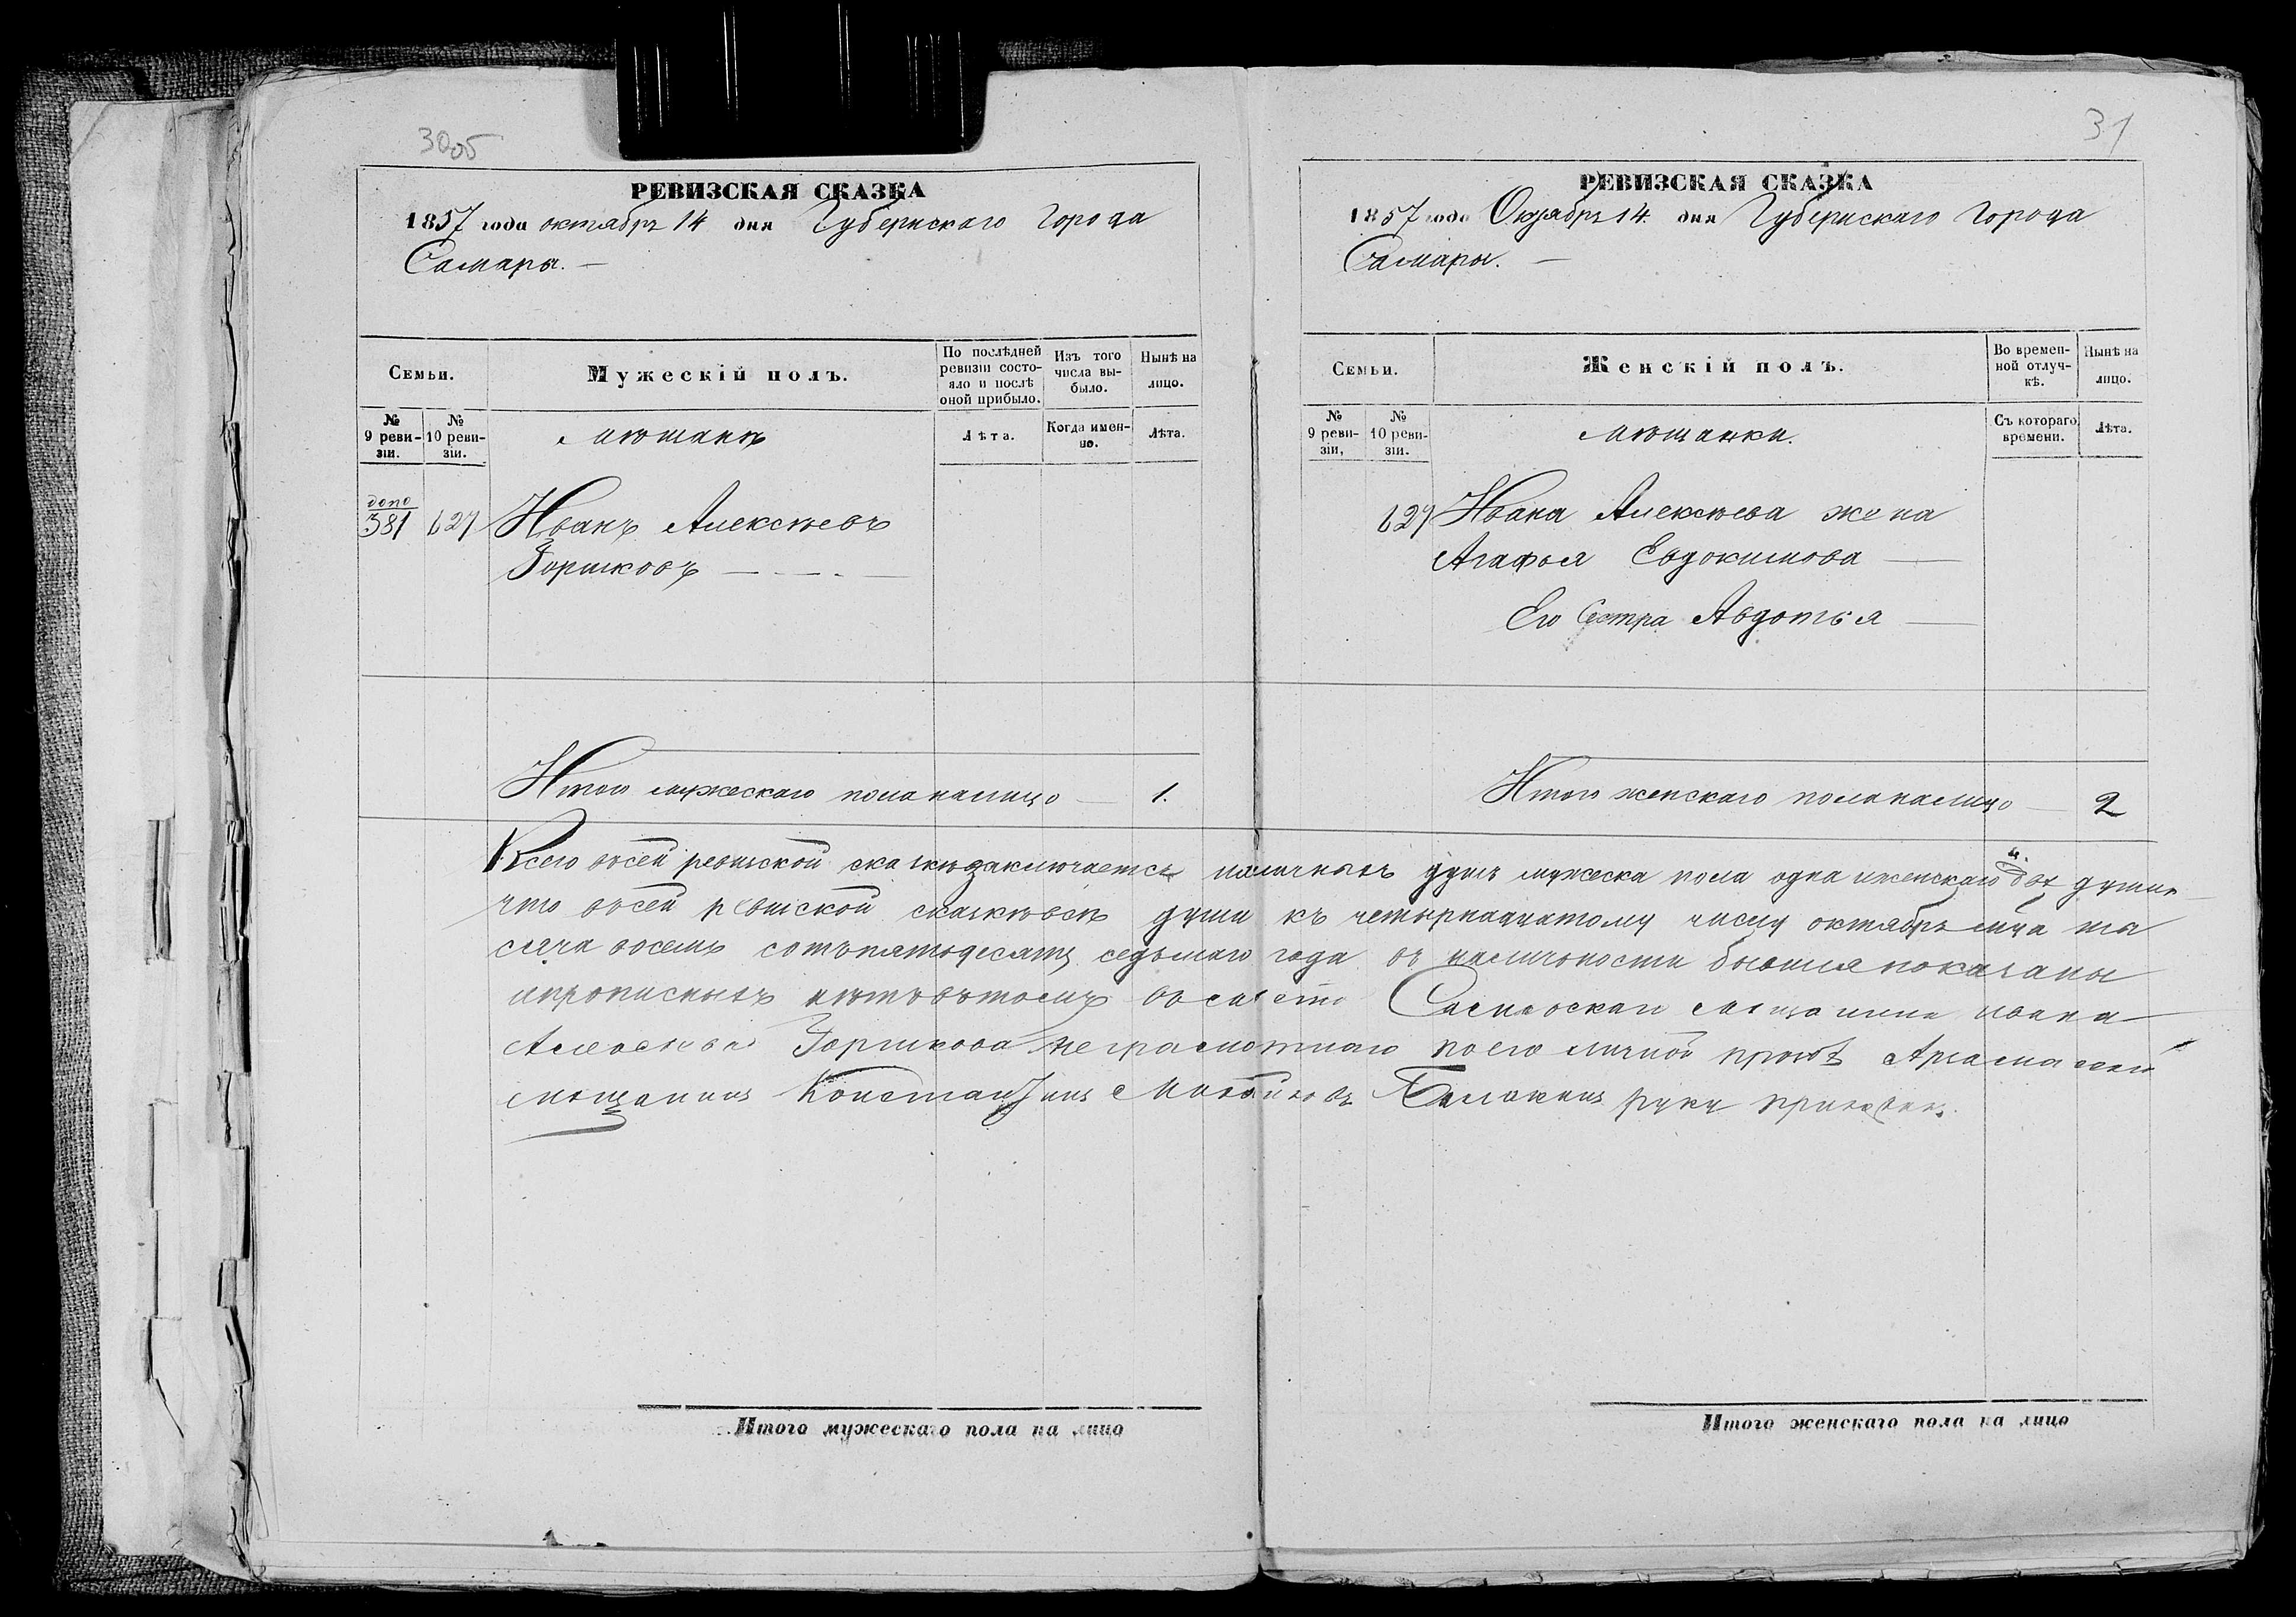 30об
РЕВИЗСКАЯ СКАЗКА
1857 года октября 14 дня Губернскаго Города
Самары. —
Семьи.
Мужескій полъ.
По послѣдней ревизіи состояло и послѣ оной прибыло.
Изъ того числа выбыло.
Нынѣ на лицо.
№ 9 ревизіи.
№ 10 ревизіи.
мѣщанѣ
Лѣта.
Когда именно.
Лѣта.
допо
381 627 Иванъ Алексѣевъ
Горшковъ
Итого мужескаго пола налицо — 1.
31
РЕВИЗСКАЯ СКАЗКА
1857 года Октября 14 дня Губернскаго Города
Самары. —
Семьи.
Женскій полъ.
Во временной отлучкѣ.
Нынѣ на лицо.
№ 9 ревизіи,
№ 10 ревизіи.
мѣщанки.
Съ котораго времени.
Лѣта.
627 Ивана Алексѣева жена
Агафья Евдокимова —
Его Сестра Авдотья —
Итого женскаго пола налицо — 2
Всего всей ревизской сказкѣ заключается наличныхъ душъ мужеска пола одна и женскаго двѣ души
что всей ревизской сказкѣ всѣ души къ четырнадцатому числу октября мца ты
сяча восемь сотъ пятьдесятъ седьмаго года въ наличности бывшия показаны
и прописныхъ нѣтъ вътомъ вместо Самарскаго мещанина ивана
Алексѣева Горшкова неграмотнаго по его личной прозбѣ Арзамаской
мещанинъ Константинъ руку приложилъ.
Итого мужескаго пола на лицо
Итого женскаго пола на лицо